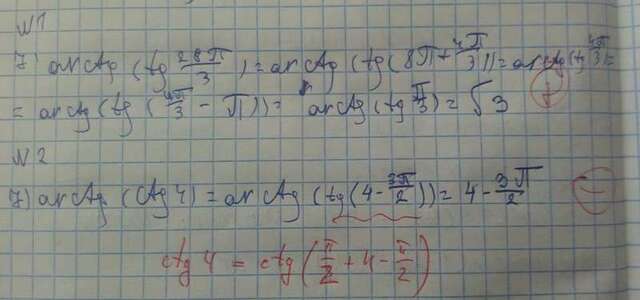 №1
7) arctg (tg 28π/3) = arctg (tg (8π + 4π/3)) = arctg (tg 4π/3) =
= arctg (tg (4π/3 - π)) = arctg (tg π/3) = √3
№2
7) arctg (ctg 4) = arctg (tg (4 - 3π/2)) = 4 - 3π/2
ctg 4 = ctg (π/2 + 4 - π/2)